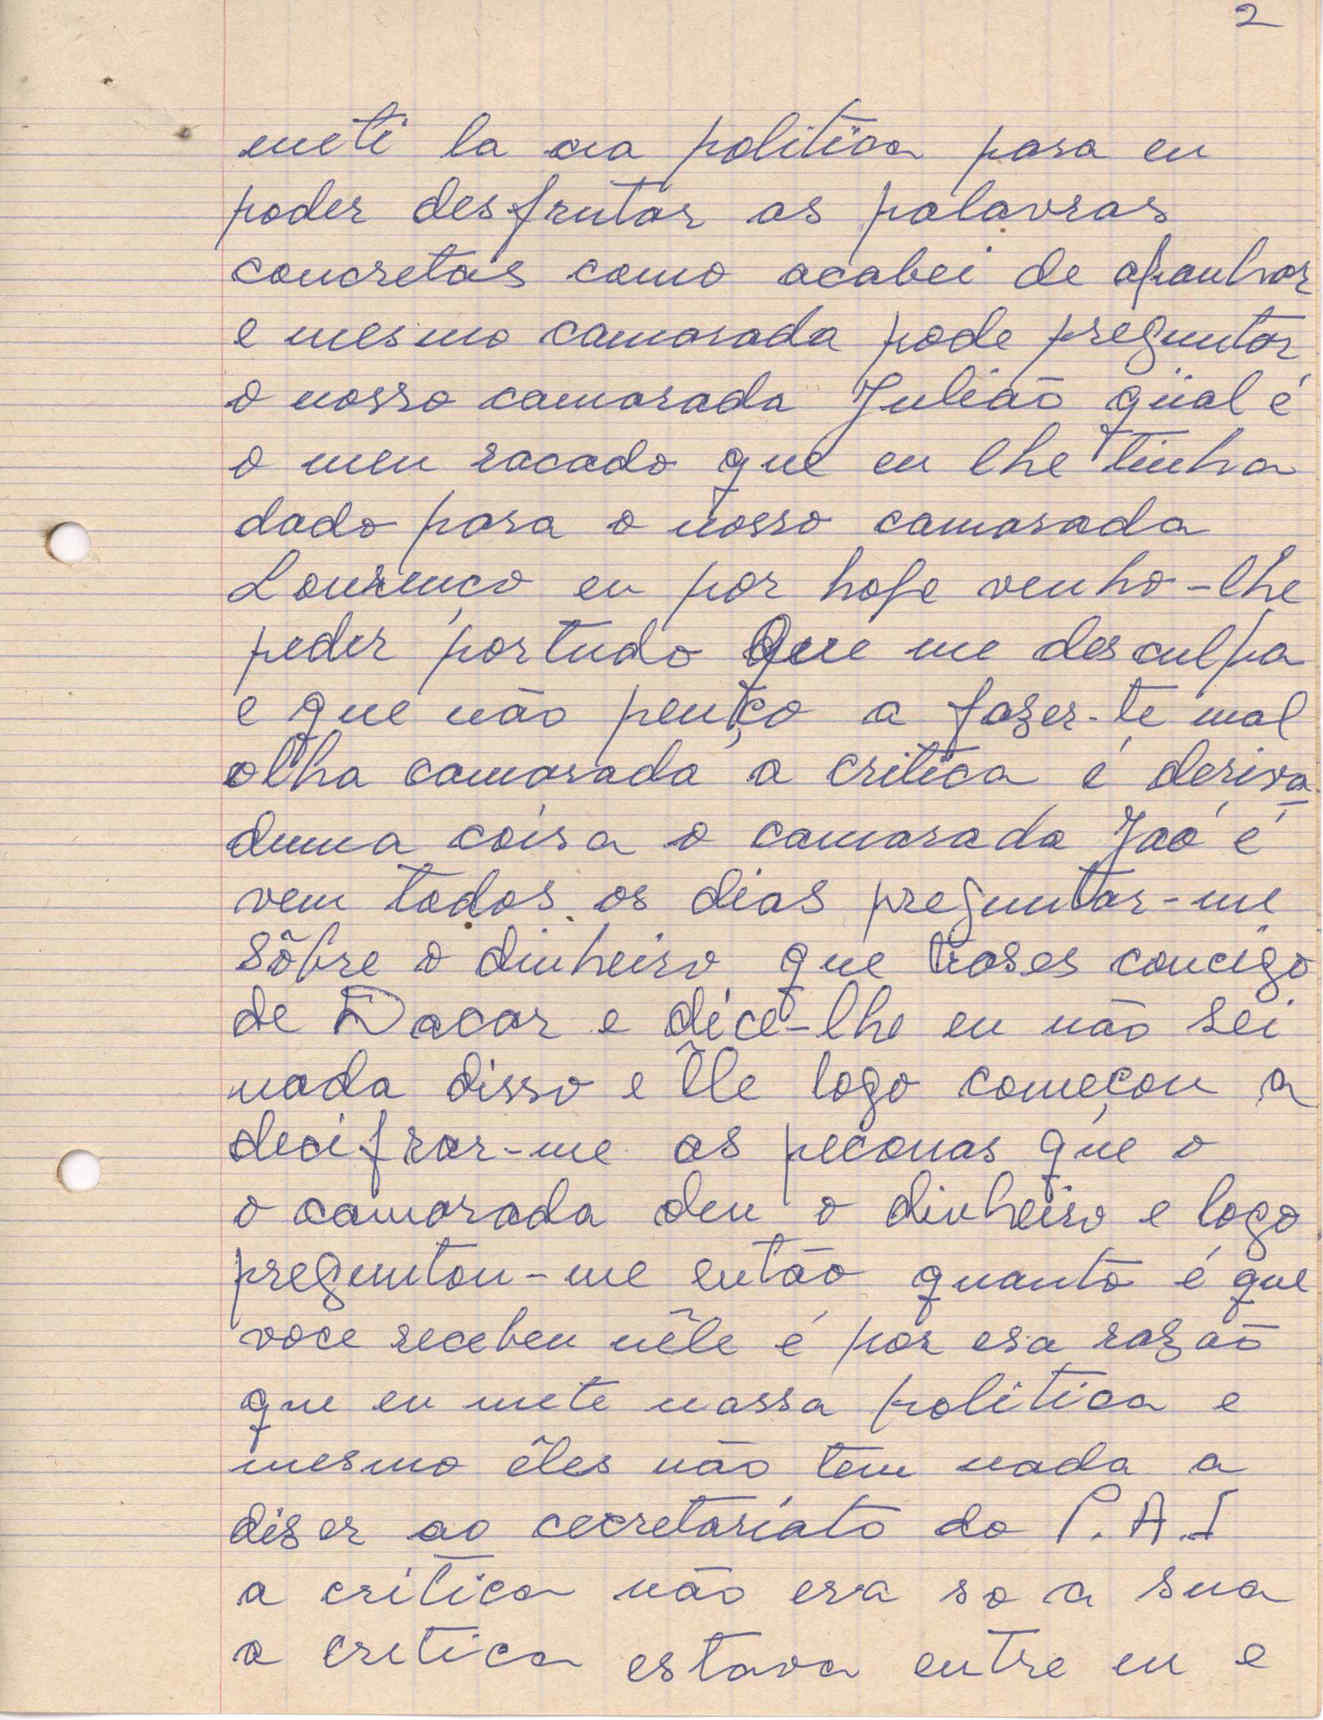 2
meti la na politica para eu
poder desfrutar as palavras
concretas como acabei de apanhar
e mesmo camarada pode preguntar
o nosso camarada Julião qüal é
o meu racado que eu lhe tinha
dado para o nosso camarada
Lourenço eu por hoje venho-lhe
peder portudo Que me desculpa
e que não penço a fazer-te mal
olha camarada a critica é deriva
duma coisa o camarada Jaó é
vem todos os dias preguntar-me
sôbre o dinheiro que troses concigo
de Dacar e dice-lhe eu não sei
nada disso e êle logo começou a
decifrar-me as peconas que o
o camarada deu o dinheiro e logo
preguntou-me então quanto é que
voce recebeu nêle é por esa razão
que eu mete nassa politica e
mesmo êles não tem nada a
diser ao cecretariato do P.A.I
a critica não era so a sua
a cretica estava entre eu e